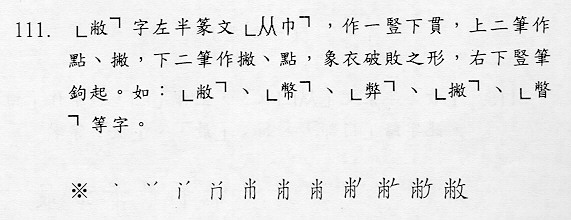 111. ﹂敝﹁字左半篆文﹂㸚巾﹁，作一豎下貫，上二筆作
點、撇，下二筆作撇、點，象衣破敗之形，右下豎筆
鉤起。如：﹂敝﹁、﹂幣﹁、﹂弊﹁、﹂撇﹁、﹂瞥
﹁等字。
※